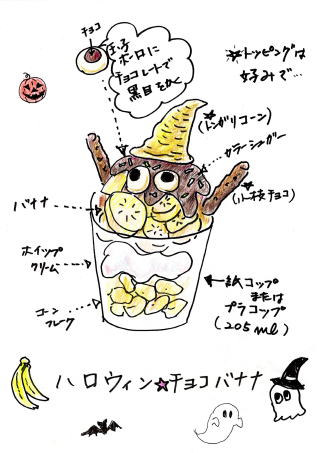 チョコ
玉子
ボーロに
チョコレートで
黒目をかく
☆トッピングは
好みで…
☆
(トンガリコーン)
カラーシュガー
☆
(小枝チョコ)
バナナ
ホイップ
クリーム
コーン
フレーク
紙コップ
または
プラコップ
(205ml)
ハロウィン☆チョコバナナ